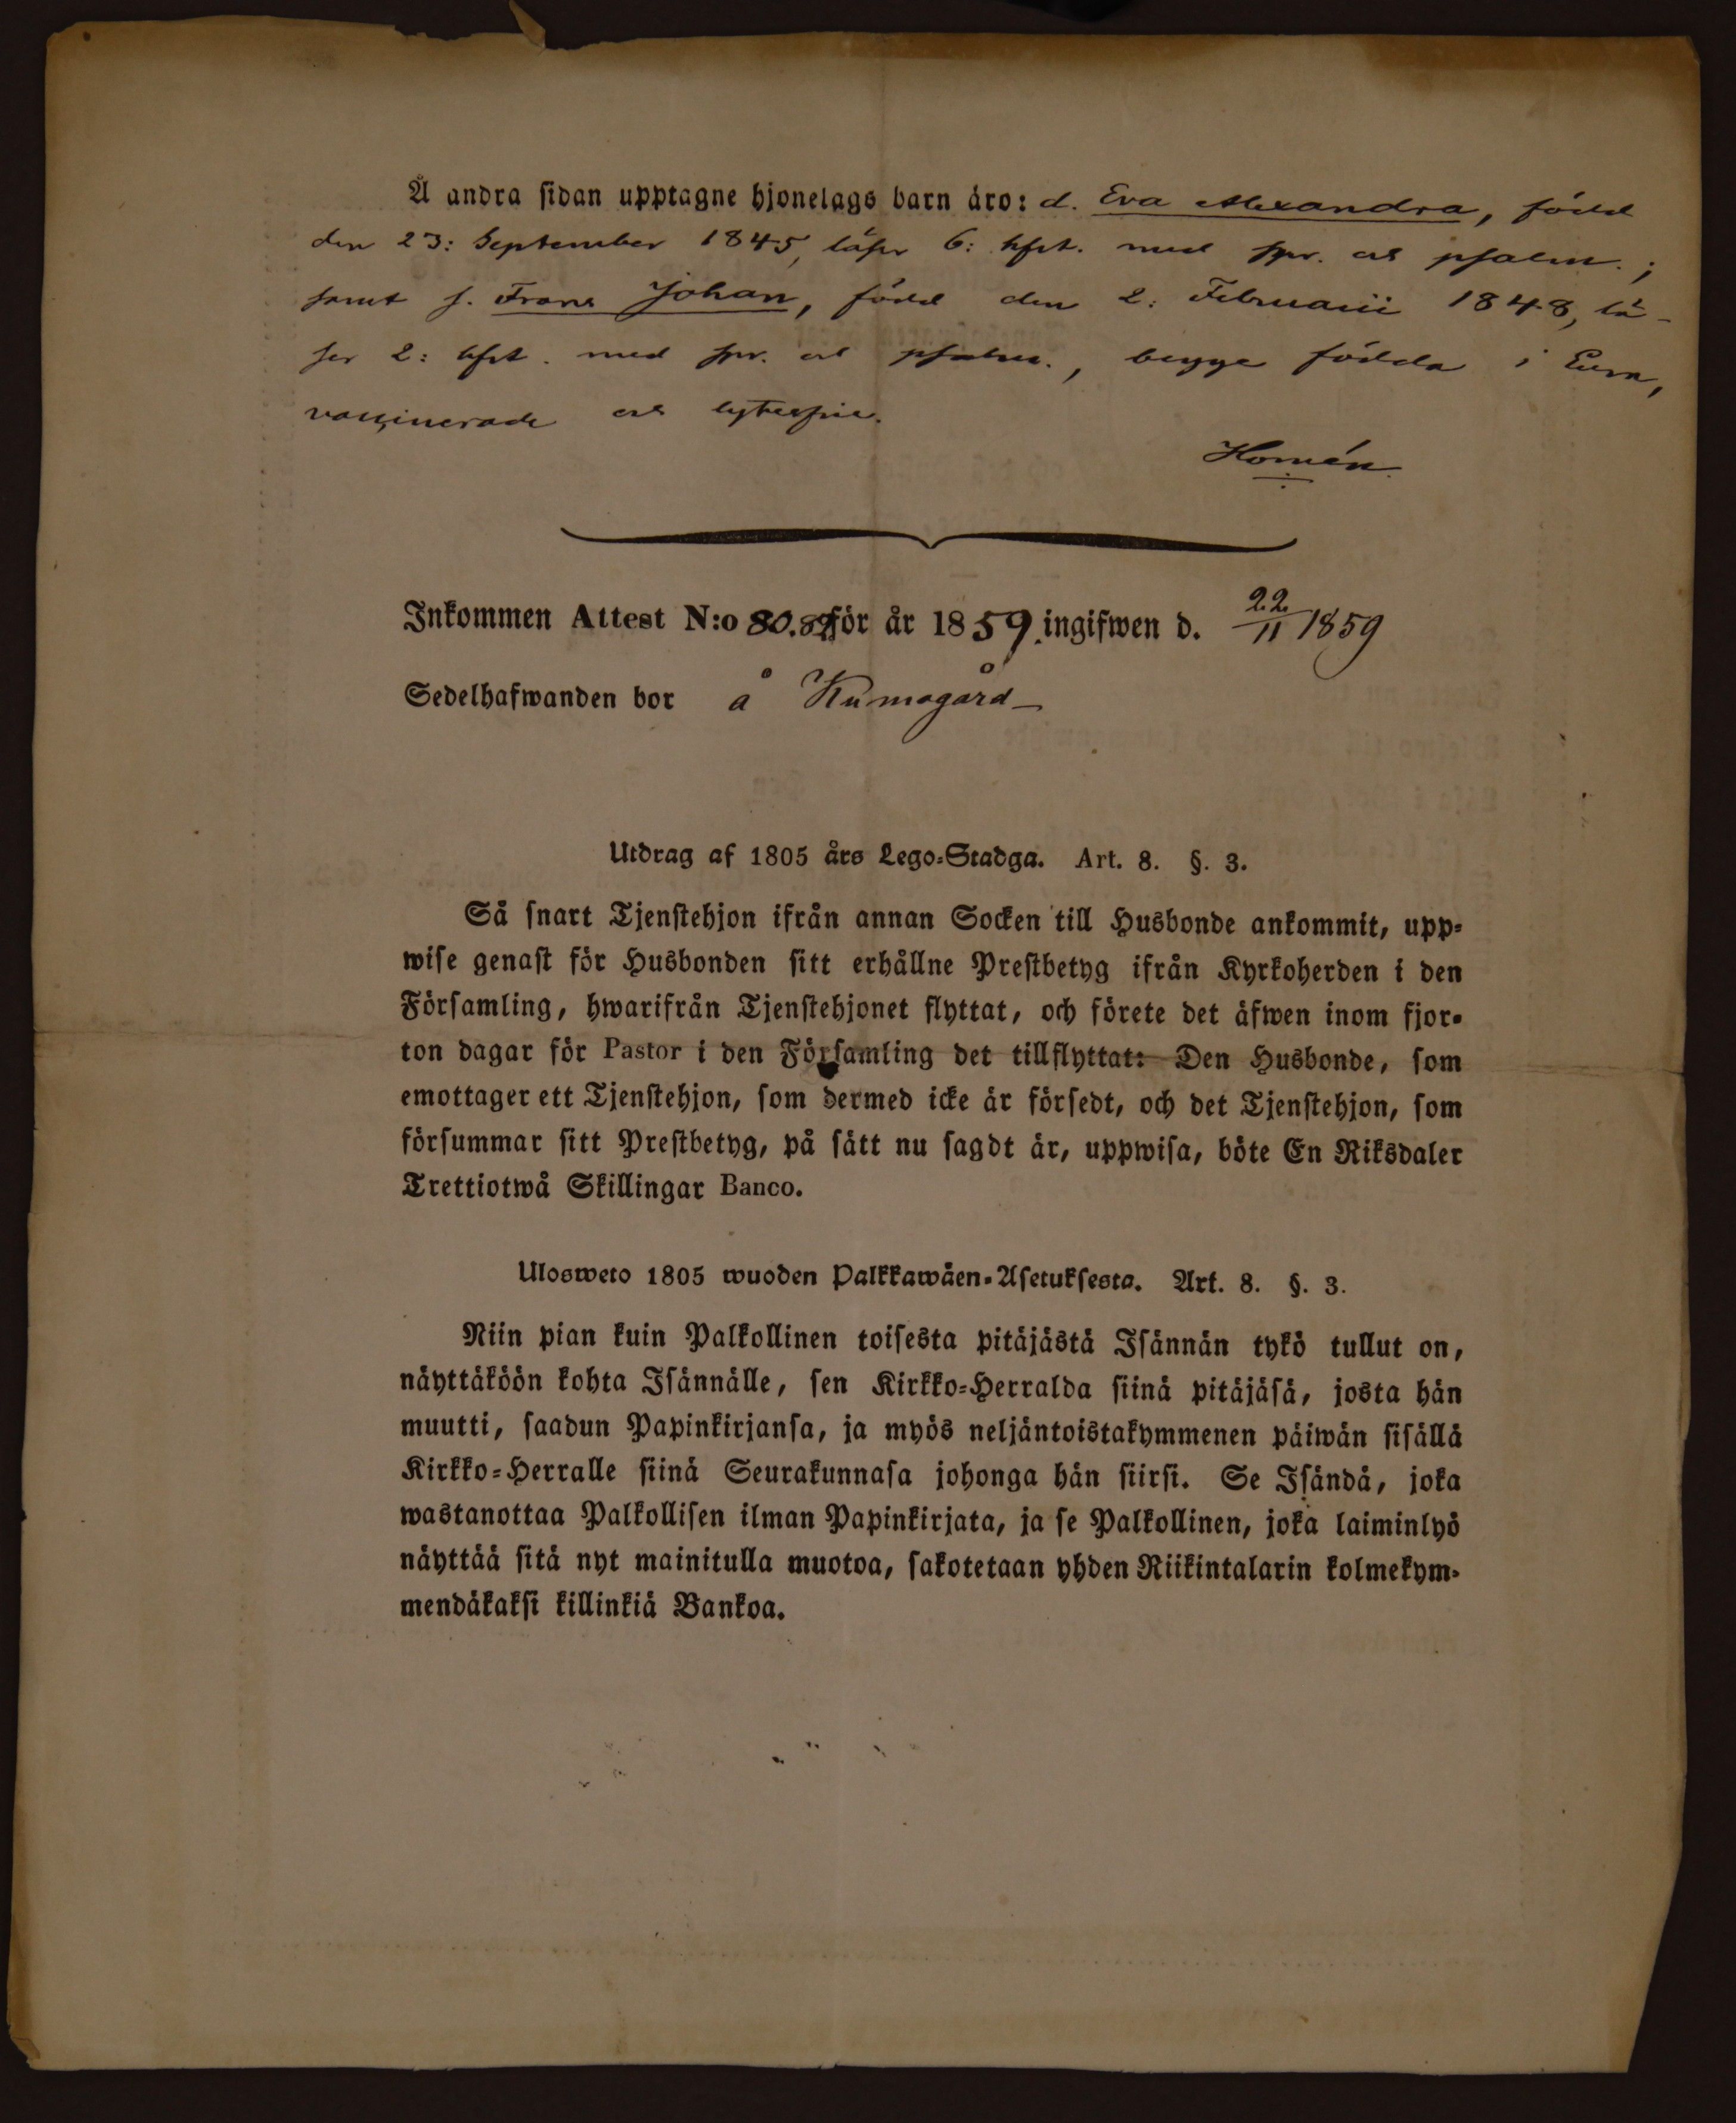 Å andra sidan upptagne hjonelags barn äro: d. Eva Alexandra, född
den 23: September 1845, läser 6: hfst. med spr. och psalm.;
samt s. Frans Johan, född den 2: Februarii 1848, lä-
ser 2: hfst. med spr. och psalm., begge födda i Eura,
vaccinerade och lytesfria.
Homén.
Inkommen Attest N:o 80.89 för år 1859. ingifwen d. 22/11 1859
Sedelhafwanden bor å Kumogård
Utdrag af 1805 års Lego-Stadga. Art. 8. §. 3.
Så snart Tjenstehjon ifrån annan Socken till Husbonde ankommit, upp-
wise genast för Husbonden sitt erhållne Prestbetyg ifrån Kyrkoherden i den
Församling, hwarifrån Tjenstehjonet flyttat, och förete det äfwen inom fjor-
ton dagar för Pastor i den Församling det tillflyttat: Den Husbonde, som
emottager ett Tjenstehjon, som dermed icke är försedt, och det Tjenstehjon, som
försummar sitt Prestbetyg, på sätt nu sagdt är, uppwisa, böte En Riksdaler
Trettiotwå Skillingar Banco.
Ulosweto 1805 wuoden Palkkawäen-Asetuksesta. Art. 8. §. 3.
Niin pian kuin Palkollinen toisesta pitäjästä Isännän tykö tullut on,
näyttäköön kohta Isännälle, sen Kirkko-Herralda siinä pitäjäsä, josta hän
muutti, saadun Papinkirjansa, ja myös neljäntoistakymmenen päiwän sisällä
Kirkko-Herralle siinä Seurakunnasa johonga hän siirsi. Se Isändä, joka
wastanottaa Palkollisen ilman Papinkirjata, ja se Palkollinen, joka laiminlyö
näyttää sitä nyt mainitulla muotoa, sakotetaan yhden Riikintalarin kolmekym-
mendäkaksi killinkiä Bankoa.